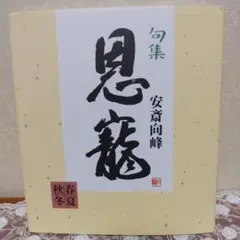 句集
恩寵
安斎向峰
春夏
秋冬